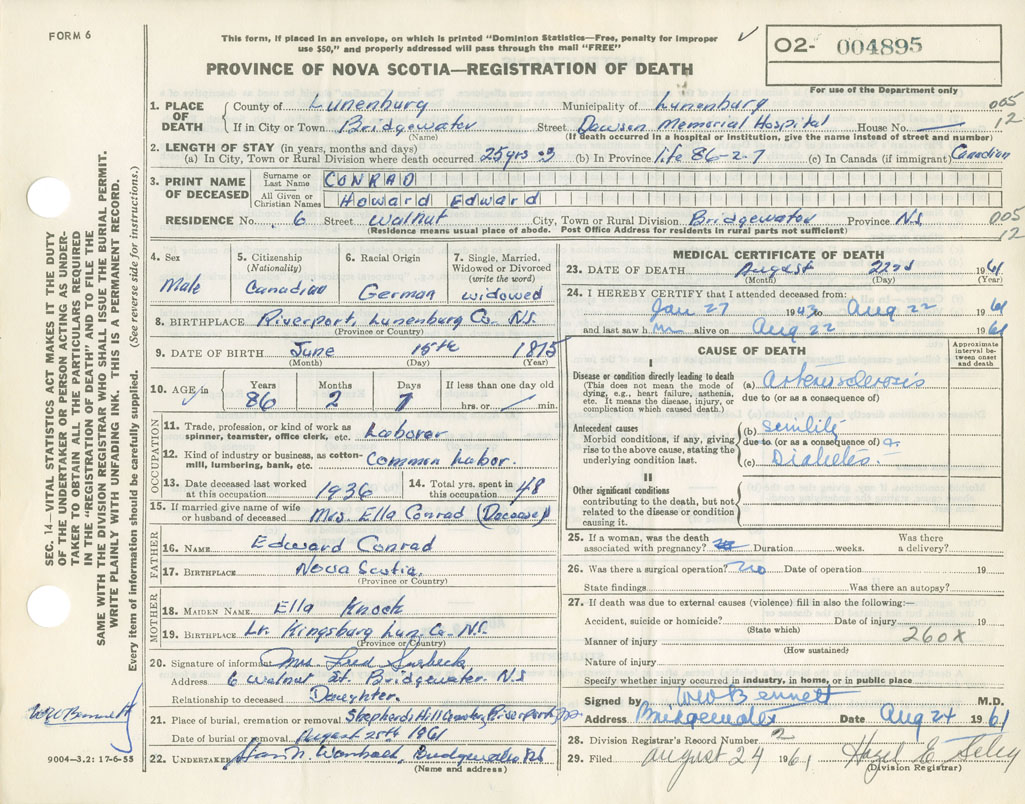 FORM 6
This form, if placed in an envelope, on which is printed "Dominion Statistics—Free, penalty for improper
use $50," and properly addressed will pass through the mail "FREE"
02- 004895
PROVINCE OF NOVA SCOTIA—REGISTRATION OF DEATH
For use of the Department only
1. PLACE OF DEATH County of Lunenburg Municipality of Lunenburg 005
If in City or Town Bridgewater Street Dawson Memorial Hospital House No. — 12
(Name) (If death occurred in a hospital or institution, give the name instead of street and number)
2. LENGTH OF STAY (in years, months and days)
(a) In City, Town or Rural Division where death occurred 25 yrs (b) In Province life 86-2-7 (c) In Canada (if immigrant) Canadian
3. PRINT NAME OF DECEASED Surname or Last Name CONRAD
All Given or Christian Names Howard Edward
RESIDENCE No. 6 Street Walnut City, Town or Rural Division Bridgewater Province N.S. 005
(Residence means usual place of abode. Post Office Address for residents in rural parts not sufficient) 12
4. Sex Male
5. Citizenship (Nationality) Canadian
6. Racial Origin German
7. Single, Married, Widowed or Divorced (write the word) widowed
8. BIRTHPLACE Riverport, Lunenburg Co. N.S.
(Province or Country)
9. DATE OF BIRTH June 15th 1875
(Month) (Day) (Year)
10. AGE in Years 86 Months 2 Days 7 If less than one day old hrs. or min.
OCCUPATION
11. Trade, profession, or kind of work as spinner, teamster, office clerk, etc. Laborer
12. Kind of industry or business, as cotton-mill, lumbering, bank, etc. Common Labor.
13. Date deceased last worked at this occupation 1936 14. Total yrs. spent in this occupation 48
15. If married give name of wife or husband of deceased Mrs. Ella Conrad (Deceased)
FATHER
16. NAME Edward Conrad
17. BIRTHPLACE Nova Scotia
(Province or Country)
MOTHER
18. MAIDEN NAME Ella Knock
19. BIRTHPLACE Lr. Kingsburg Lun. Co. N.S.
(Province or Country)
20. Signature of informant Mrs. Fred
Address 6 Walnut St. Bridgewater N.S
Relationship to deceased Daughter.
21. Place of burial, cremation or removal Riverport
Date of burial or removal August 25th 1961
22. UNDERTAKER Bridgewater
(Name and address)
MEDICAL CERTIFICATE OF DEATH
23. DATE OF DEATH August 22nd 1961
(Month) (Day) (Year)
24. I HEREBY CERTIFY that I attended deceased from:
Jan 27 1943 to Aug 22 1961
and last saw him alive on Aug 22 1961
CAUSE OF DEATH
Approximate interval between onset and death
I
Disease or condition directly leading to death (a) Arteriosclerosis
(This does not mean the mode of dying, e.g., heart failure, asthenia, etc. It means the disease, injury, or complication which caused death.) due to (or as a consequence of)
Antecedent causes (b) senility
Morbid conditions, if any, giving rise to the above cause, stating the underlying condition last. due to (or as a consequence of)
(c) Diabetes.
II
Other significant conditions
contributing to the death, but not related to the disease or condition causing it.
25. If a woman, was the death associated with pregnancy? Duration weeks. Was there a delivery?
26. Was there a surgical operation? no Date of operation 19
State findings Was there an autopsy?
27. If death was due to external causes (violence) fill in also the following:—
Accident, suicide or homicide? Date of injury 19
(State which)
Manner of injury 260X
(How sustained)
Nature of injury
Specify whether injury occurred in industry, in home, or in public place
Signed by WW Bennett M.D.
Address Bridgewater Date Aug 24 1961
28. Division Registrar's Record Number 2
29. Filed August 24 1961 Hazel E
(Division Registrar)
SEC. 14—VITAL STATISTICS ACT MAKES IT THE DUTY
OF THE UNDERTAKER OR PERSON ACTING AS UNDER-
TAKER TO OBTAIN ALL THE PARTICULARS REQUIRED
IN THE "REGISTRATION OF DEATH" AND TO FILE THE
SAME WITH THE DIVISION REGISTRAR WHO SHALL ISSUE THE BURIAL PERMIT.
WRITE PLAINLY WITH UNFADING INK. THIS IS A PERMANENT RECORD.
Every item of information should be carefully supplied. (See reverse side for instructions.)
WW Bennett
9004—3.2: 17-6-55